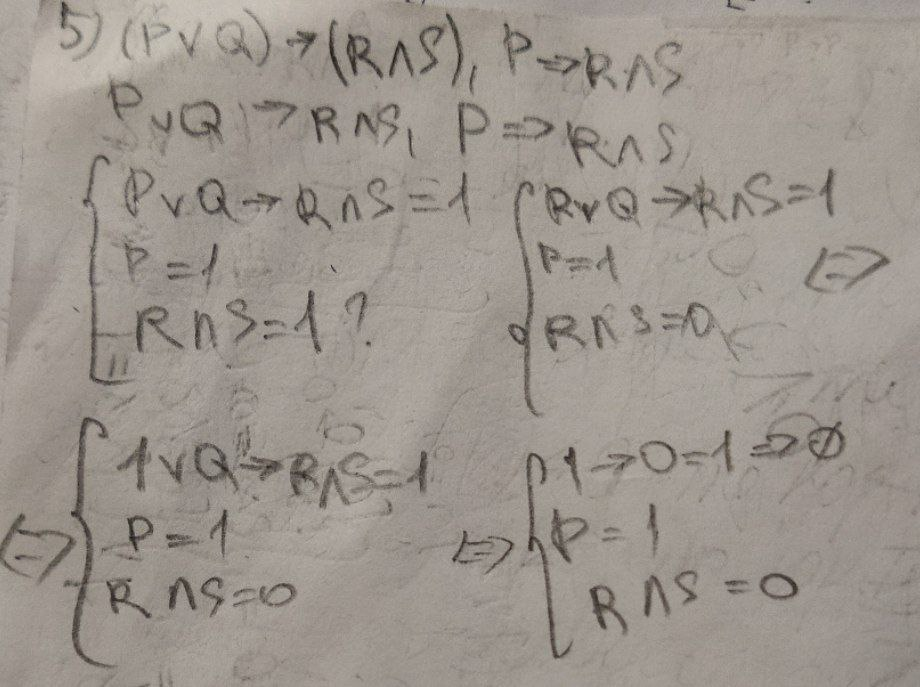 5) (P∨Q)→(R∧S), P⇒R∧S
P∨Q→R∧S, P⇒R∧S
P∨Q→R∧S=1
P=1
R∧S=1?
R∨Q→R∧S=1
P=1
R∧S=0
⇔
1∨Q→R∧S=1
⇔ P=1
R∧S=0
1→0=1⇒∅
⇔ P=1
R∧S=0